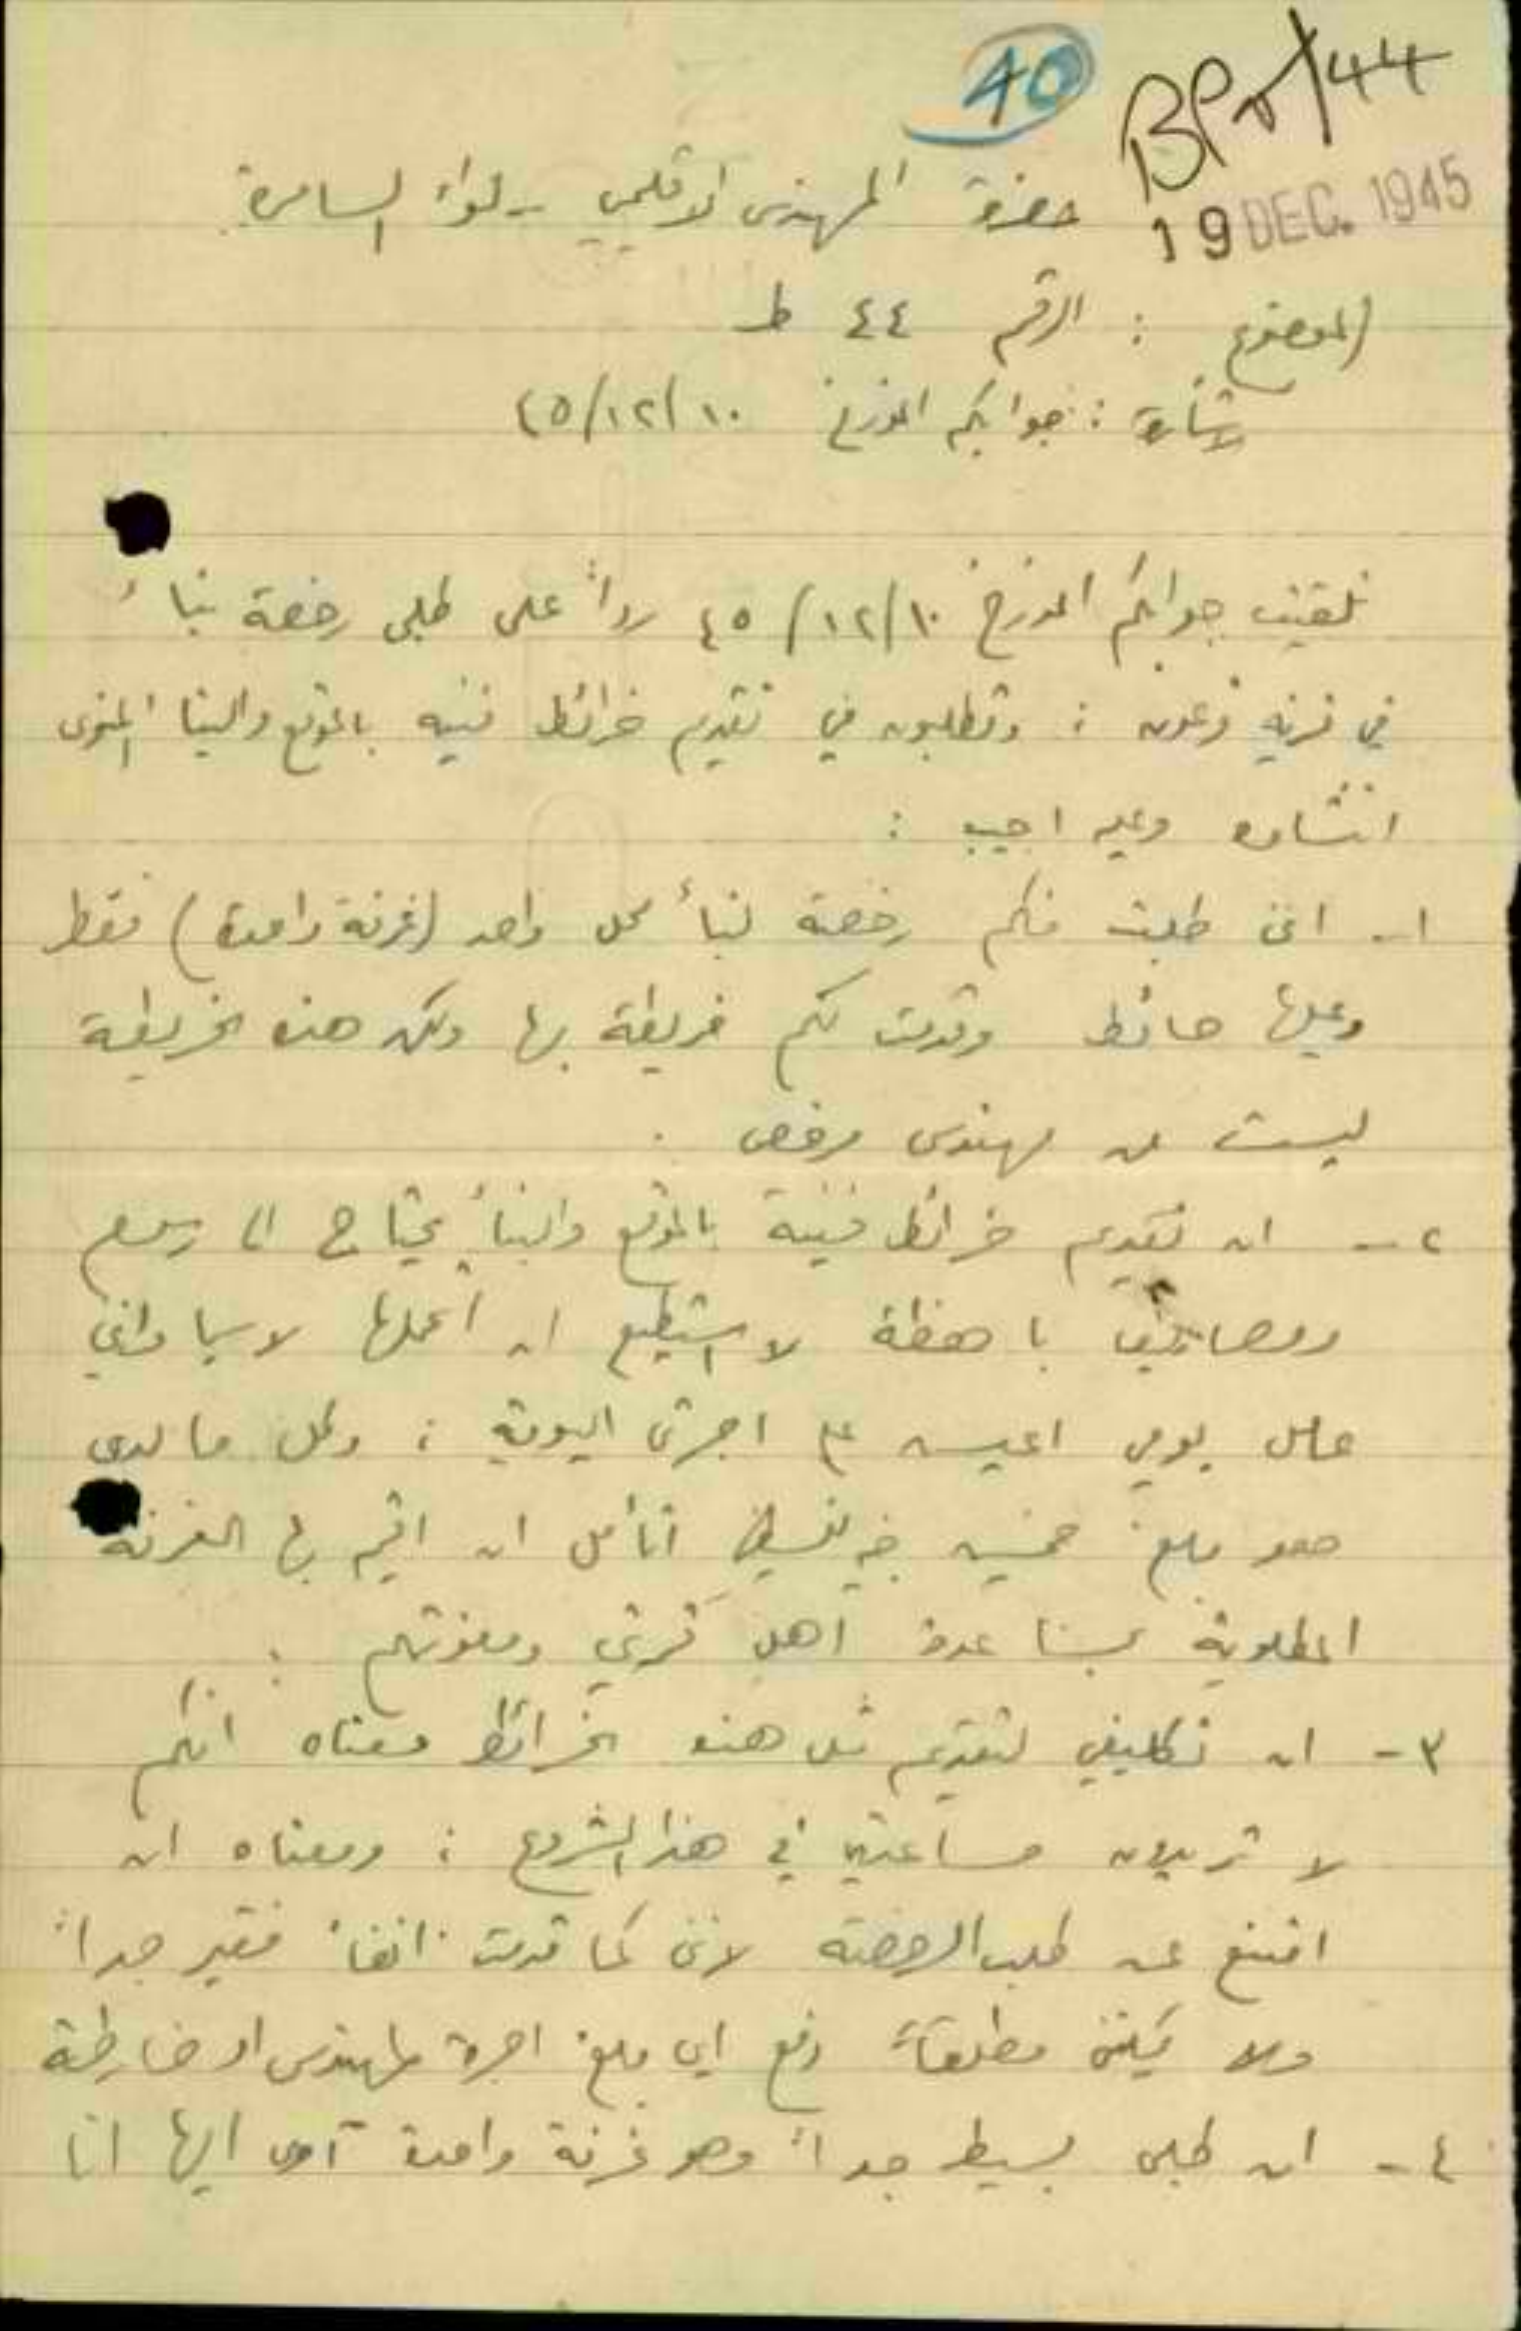 40
BP ४/44
19 DEC. 1945
حضرة المهندس الاقليمي - لواء السامرة
الموضوع : الرقم ٤٤ ط
الاشارة : جوابكم المؤرخ ١٠/١٢/٤٥
تلقيت جوابكم المؤرخ ١٠/١٢/٤٥ رداً على طلبي رخصة بناء
في قرية فرعون : وتطلبون في تقديم خرائط فنيه بالموقع والبنا المنوى
انشاؤه وعليه اجيب :
١- انني طلبت منكم رخصة لبناء محل واحد (غرفة واحدة) فقط
وعليها حائط وقدمت لكم خريطة بها ولكن هذه الخريطة
ليست من مهندس مرخص .
٢- ان تقديم خرائط فنية بالموقع والبناء يحتاج الى رسوم
ومصاريف باهظة لا استطيع ان اتحملها لا سيما وانني
عامل يومي اعيش على اجرتي اليومية : وكل ما لدي
هو مبلغ خمسين جنيه فلسطيني اتأمل ان اقيم بها الغرفة
المطلوبة بمساعدة اهل قريتي ومعونتهم .
٣- ان تكليفي لتقديم مثل هذه الخرائط معناه انكم
لا تريدون مساعدتي في هذا المشروع : ومعناه ان
امتنع عن طلب الرخصة لانني كما قدمت انفاً فقير جداً
ولا يمكنني مطلقاً دفع اي مبلغ اجرة لمهندس او خارطة
٤- ان طلبي بسيط جداً وهو غرفة واحدة آوى اليها انا